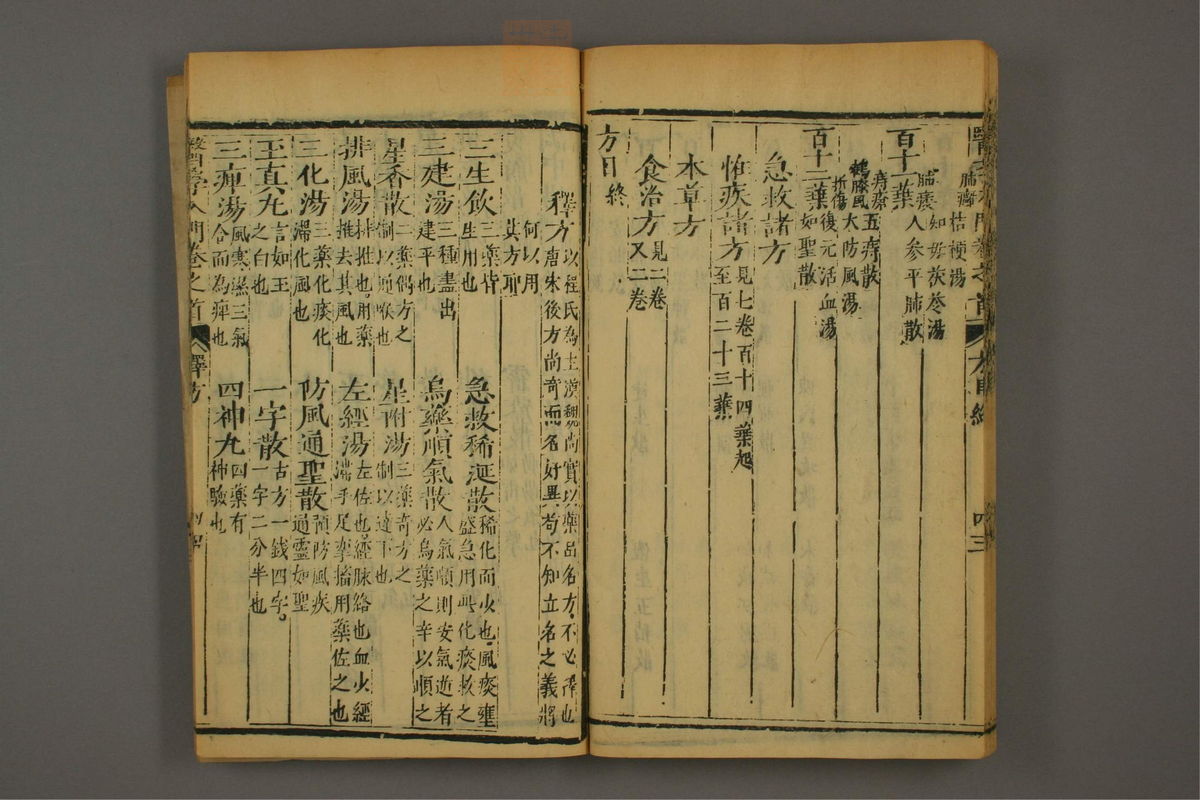 肺癰
桔梗湯
知母茯苓湯
肺痿
人參平肺散
百十一葉
痔瘡
五痔散
鶴膝風
大防風湯
折傷
復元活血湯
百十二葉
如聖散
急救諸方
怪疾諸方
見七卷百十四葉起
至百二十三葉
本草方
食治方
見二卷
又二卷
方目終
方目終
四三
釋方
以程氏為主漢魏尚實以藥品名方不必釋也
唐宋後方尚奇而名好異苟不知立名之義將
何以用
其方耶
三生飲
三藥皆
生用也
急救稀涎散
稀化而少也風痰壅
盛急用此化痰救之
三建湯
三種盡出
建平也
烏藥順氣散
人氣順則安氣逆者
必烏藥之辛以順之
星香散
二藥偶方之
制以通喉也
星附湯
三藥奇方之
制以達下也
排風湯
排推也用藥
推去其風也
左經湯
左佐也經脉絡也血火經
滯手足掌擂用藥佐之也
三化湯
三藥化痰化
滯化風也
防風通聖散
預防風疾
通靈如聖
玉真丸
言如玉
之白也
一字散
古方一錢四字
一字二分半也
三痺湯
風寒濕三氣
合而為痺也
四神丸
四藥有
神驗也
醫學入門卷之首
釋方